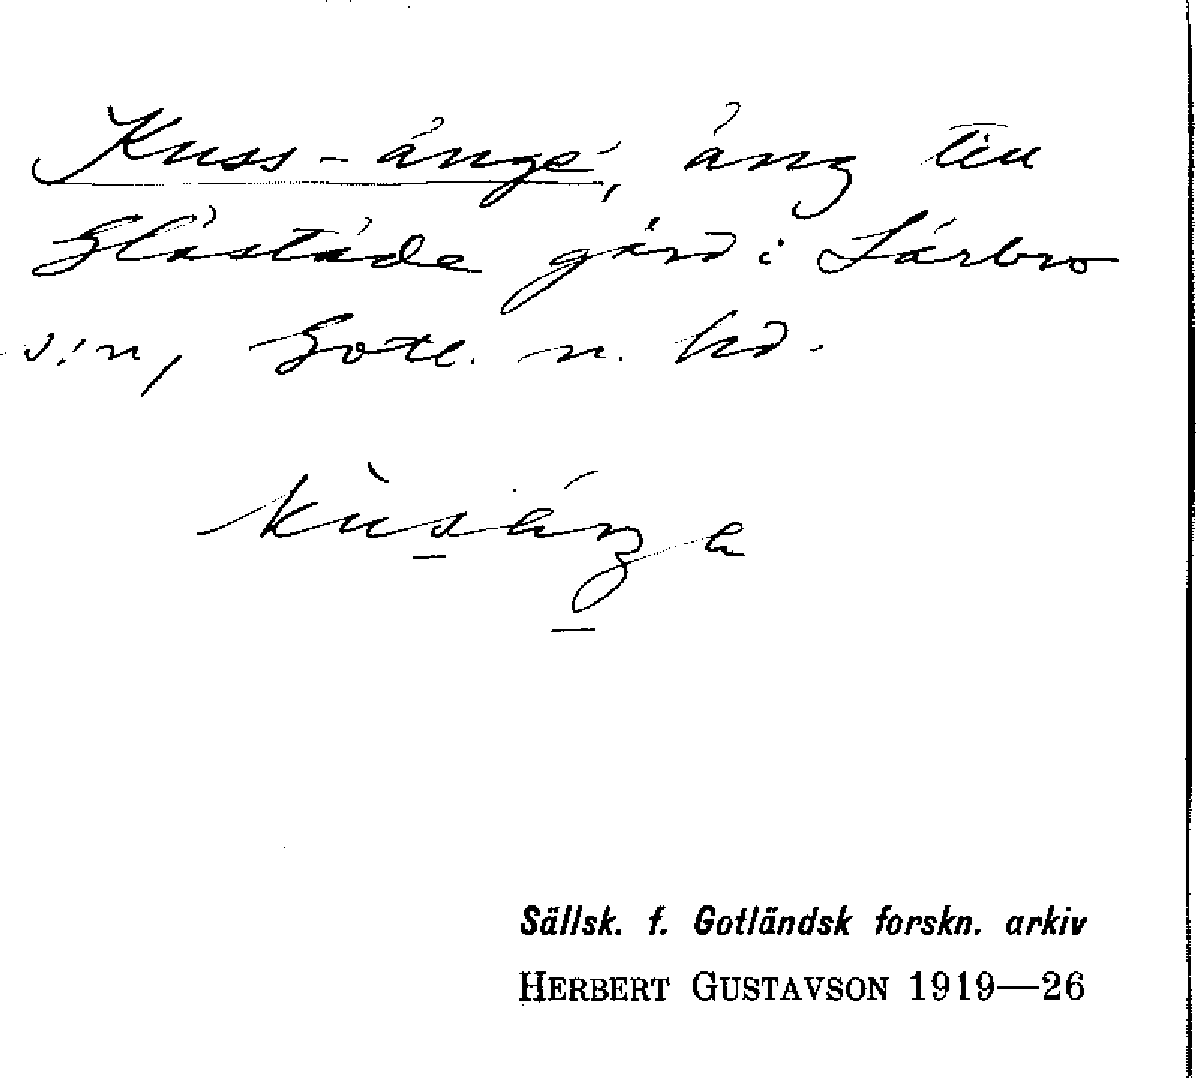 Kuss-änge, äng till
Glästäde gård i Lärbro
s:n, Gotl. n. hd.
kùsánga
Sällsk. f. Gotländsk forskn. arkiv
HERBERT GUSTAVSON 1919—26